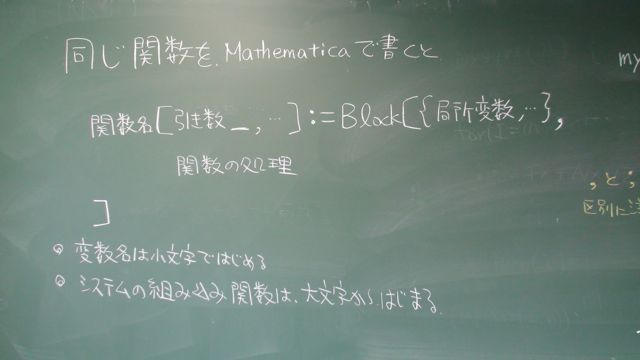 同じ関数を、Mathematicaで書くと
my
関数名[引き数_, …] := Block[{局所変数, …},
関数の処理
, と ;
区別に
]
◦ 変数名は小文字ではじめる
◦ システムの組み込み関数は、大文字からはじまる.